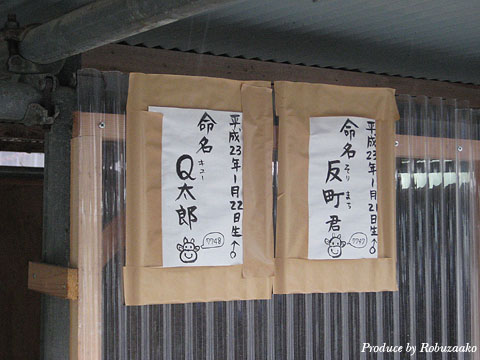 平成23年1月21日生♂
命名
反町君
そり まち
7747
平成23年1月22日生♂
命名
Q太郎
キュー
7748
Produce by Robuzaako